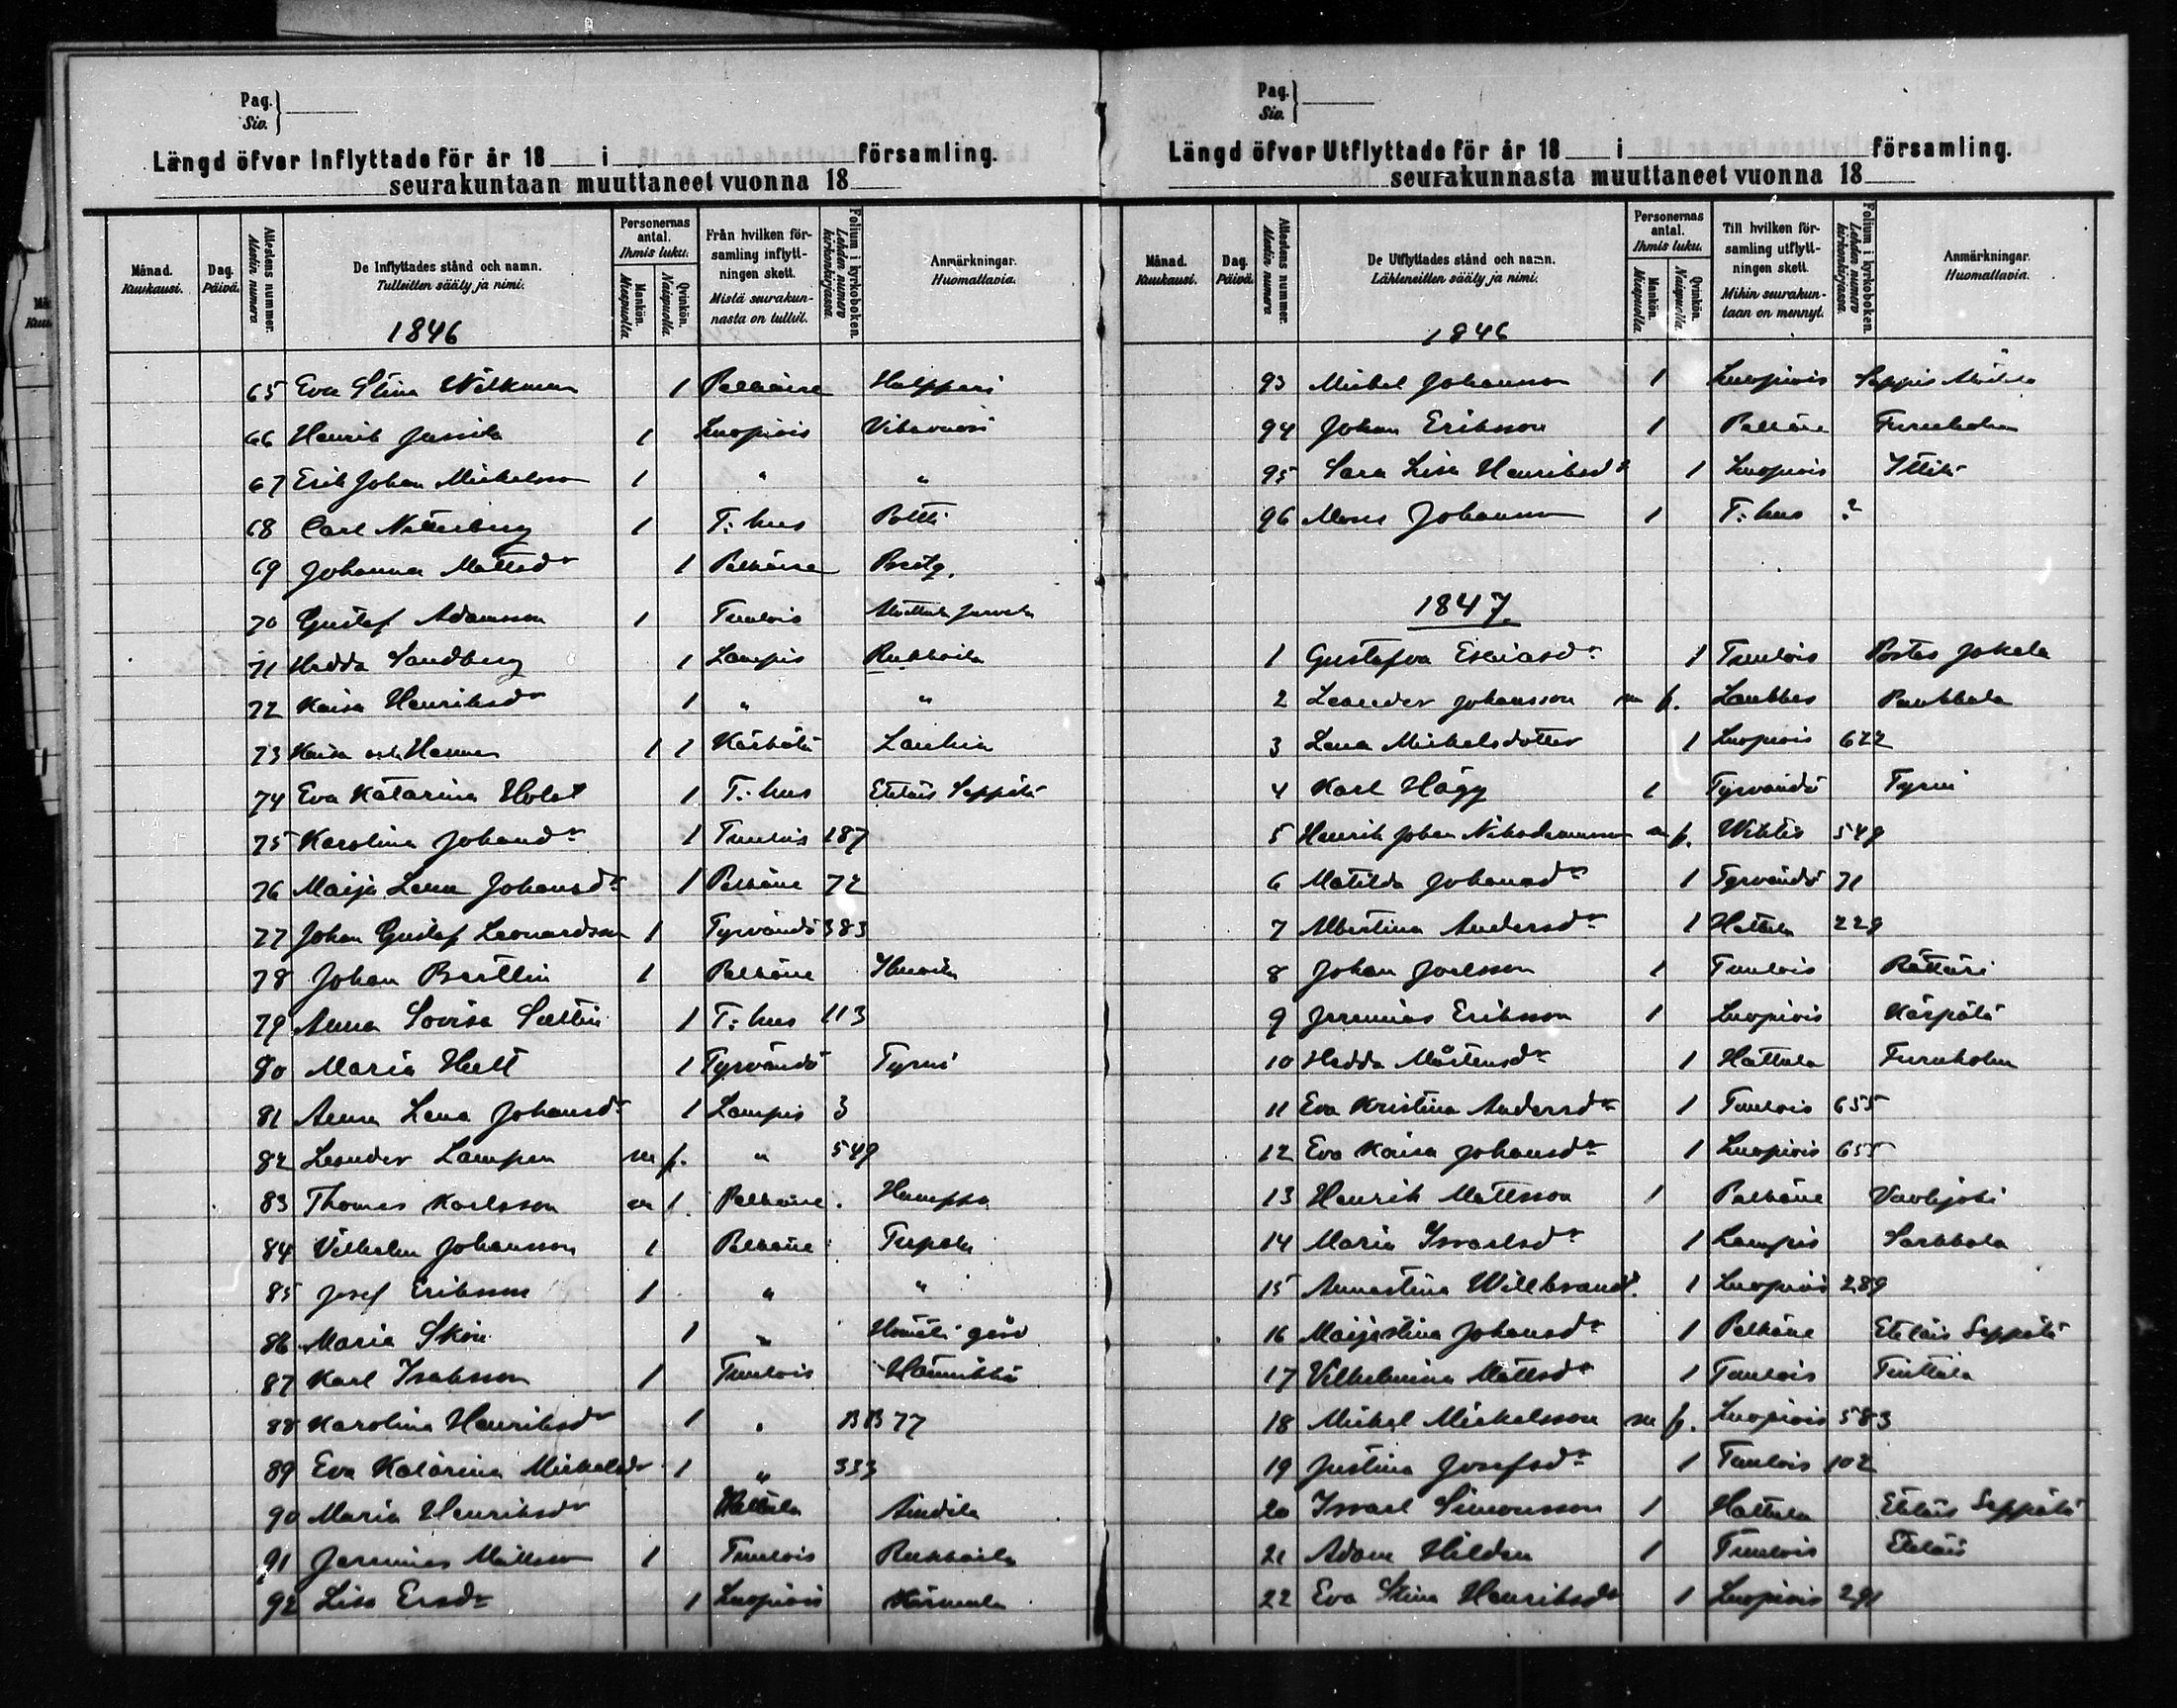 Pag.
Siv.
Längd öfver Inflyttade för år 18 i församling.
seurakuntaan muuttaneet vuonna 18
Månad. Kuukausi.
Dag. Päivä.
Attestens nummer. Alestin numero.
De Inflyttades stånd och namn. Tulleitten sääty ja nimi.
Personernas antal. Ihmis luku.
Mankön. Miespuolla
Qvinkön. Naispuolla.
Från hvilken församling inflyttningen skett. Mistä seurakunnasta on tullut.
Folium i kyrkoboken. Lehden numero kirkonkirjassa.
Anmärkningar. Huomattavia.
1846
65 Eva Stina Wilkman 1 Pelkäne
66 Henrik Jussila 1 Luopiois Vihavuosi
67 Erik Johan Mickelsson 1 " "
68 Carl Nitterberg 1 T:hus Poltti
69 Johanna Mattsdr 1 Pelkäne
70 Gustaf Adamsson 1 Tuulois
71 Hedda Sandberg 1 Lampis Rukkoila
72 Kaisa Henriksdr 1 " "
73 Kaisa och Hannes 1 1 Kärkölä
74 Eva Katarina Holst 1 T:hus Eteläis Seppälä
75 Karolina Johansdr 1 Tuulois 187
76 Maija Lena Johansdr 1 Pelkäne 72
77 Johan Gustaf Leonardsson 1 Tyrvändö 383
78 Johan Berttlin 1 Pelkäne
79 Anna Lovisa Settin 1 T:hus 113
80 Maria Helt 1 Tyrvändö Tyrni
81 Anna Lena Johansdr 1 Lampis 3
82 Leander Lampen m f. " 549
83 Thomas Karlsson m f. Pelkäne Humppa
84 Vilhelm Johansson 1 Pelkäne Turpola
85 Josef Eriksson 1 " "
86 Maria Skön 1 "
87 Karl Isaksson 1 Tuulois Hännikkä
88 Karolina Henriksdr 1 " BB 77
89 Eva Katarina Mickelsdr 1 " 333
90 Maria Henriksdr Hattula
91 Jeremias Mattsson 1 Tuulois Rukkoila
92 Lisa Ersdr 1 Luopiois
Pag.
Siv.
Längd öfver Utflyttade för år 18 i församling.
seurakunnasta muuttaneet vuonna 18
Månad. Kuukausi.
Dag. Päivä.
Attestens nummer. Alestin numero
De Utflyttades stånd och namn. Lähteneitten sääty ja nimi.
Personernas antal. Ihmis luku.
Mankön. Miespuolla.
Qvinkön. Naispuolla.
Till hvilken församling utflyttningen skett. Mihin seurakuntaan on mennyt.
Folium i kyrkoboken. Lehden numero kirkonkirjassa.
Anmärkningar. Huomattavia.
1846
93 Mickel Johansson 1 Luopiois
94 Johan Eriksson 1 Pelkäne Furuholm
95 Sara Lisa Henriksdr 1 Luopiois Ittilä
96 Moses Johansson 1 T:hus ?
1847.
1 Gustafva Esaiasdr 1 Tuulois Jokela
2 Leander Johansson m f. Laukkas
3 Lena Mickelsdotter 1 Luopiois 622
4 Karl Hägg 1 Tyrvändö Tyrni
5 Henrik Johan Nikodemusson m f. Wihtis 549
6 Matilda Johansdr 1 Tyrvändö 71
7 Albertina Andersdr 1 Hattula 229
8 Johan Joelsson 1 Tuulois Rättäri
9 Jeremias Eriksson 1 Luopiois Kärpälä
10 Hedda Mårtensdr 1 Hattula Furuholm
11 Eva Kristina Andersdr 1 Tuulois 655
12 Eva Kaisa Johansdr 1 Luopiois 655
13 Henrik Mattsson 1 Pelkäne Vuolijoki
14 Maria Israelsdr 1 Lampis Sarkkola
15 Annastina Willbrand. 1 Luopiois 289
16 Maijastina Johansdr 1 Pelkäne Eteläis Seppälä
17 Vilhelmina Mattsdr 1 Tuulois Tuittula
18 Mickel Mickelsson m f. Luopiois 583
19 Justina Josefsdr 1 Tuulois 102
20 Israel Simonsson 1 Hattula Eteläis Seppälä
21 Adam Hilden 1 Tuulois Eteläis
22 Eva Stina Henriksdr 1 Luopiois 291